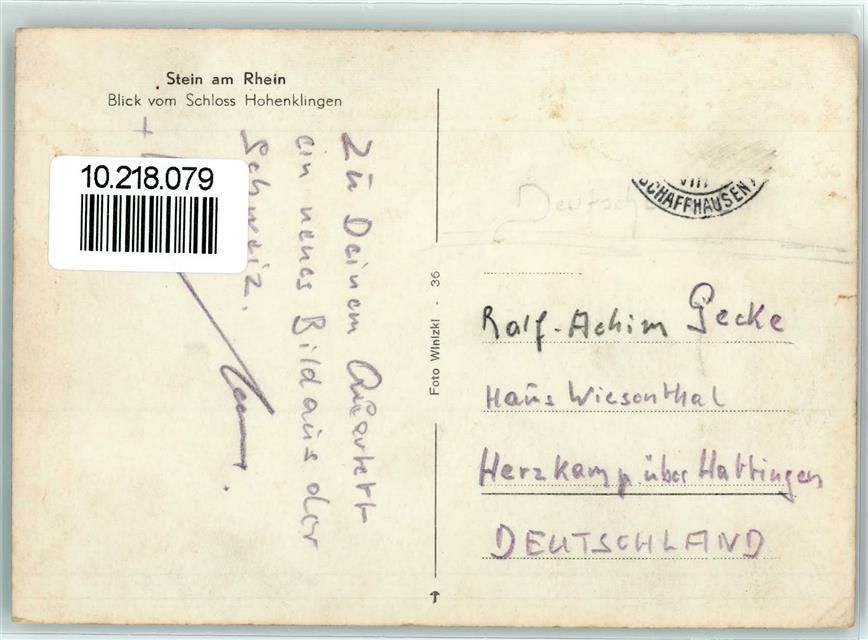 Stein am Rhein
Blick vom Schloss Hohenklingen
10.218.079
Zu Deinem Quartett
ein neues Bild aus der
Schweiz.
Foto Winizki - 36
VIII
SCHAFFHAUSEN
Deutsch
Ralf-Achim Jecke
Haus Wiesenthal
Herzkamp über Hattingen
DEUTSCHLAND